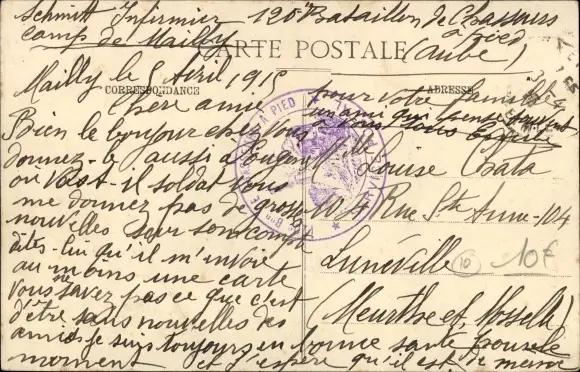 Schmitt Infirmier 120e Bataillon de Chasseurs
à pied
camp de Mailly
(Aube)
CARTE POSTALE
CORRESPONDANCE
ADRESSE
Mailly le 5 Avril 1915
Chère amie
Bien le bonjour chez vous
donnez-le aussi à
où est-il soldat vous
me donnez pas de grosses
nouvelles sur son compte
dites-lui qu'il m'envoie
au moins une carte
vous ne savez pas ce que c'est
d'être sans nouvelles des
amis je suis toujours en bonne santé pour le
moment et j'espère qu'il est de même
pour votre famille
un ami qui pense souvent
Louise
Rue Ste Anne - 104
Lunéville
(Meurthe et Moselle)
A PIED
10
10€